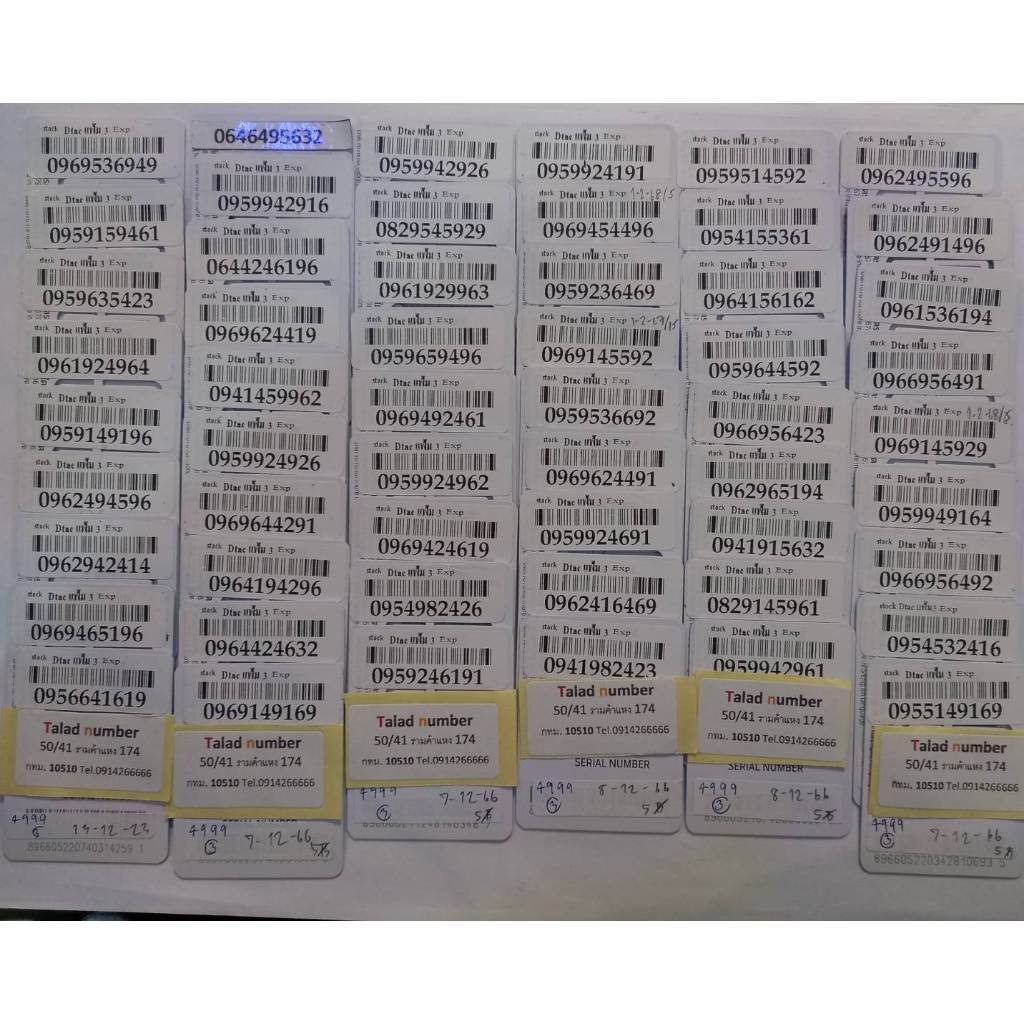 stock Dtac แฟ้ม 3 Exp
0969536949
stock Dtac แฟ้ม 3 Exp
0959159461
stock Dtac แฟ้ม 3 Exp
0959635423
stock Dtac แฟ้ม 3 Exp
0961924964
stock Dtac แฟ้ม 3 Exp
0959149196
stock Dtac แฟ้ม 3 Exp
0962494596
stock Dtac แฟ้ม 3 Exp
0962942414
stock Dtac แฟ้ม 3 Exp
0969465196
stock Dtac แฟ้ม 3 Exp
0956641619
Talad number
50/41 รามคำแหง 174
กทม. 10510 Tel.0914266666
4999
14-12-23
896605220740314259 1
0646495632
stock Dtac แฟ้ม 3 Exp
0959942916
stock Dtac แฟ้ม 3 Exp
0644246196
stock Dtac แฟ้ม 3 Exp
0969624419
stock Dtac แฟ้ม 3 Exp
0941459962
stock Dtac แฟ้ม 3 Exp
0959924926
stock Dtac แฟ้ม 3 Exp
0969644291
stock Dtac แฟ้ม 3 Exp
0964194296
stock Dtac แฟ้ม 3 Exp
0644424632
stock Dtac แฟ้ม 3 Exp
0969149169
Talad number
50/41 รามคำแหง 174
กทม. 10510 Tel.0914266666
4999
3 7-12-66
stock Dtac แฟ้ม 3 Exp
0959942926
stock Dtac แฟ้ม 3 Exp
0829545929
stock Dtac แฟ้ม 3 Exp
0961929963
stock Dtac แฟ้ม 3 Exp
0959659496
stock Dtac แฟ้ม 3 Exp
0969492461
stock Dtac แฟ้ม 3 Exp
0959924962
stock Dtac แฟ้ม 3 Exp
0969424619
stock Dtac แฟ้ม 3 Exp
0954982426
stock Dtac แฟ้ม 3 Exp
0959246191
Talad number
50/41 รามคำแหง 174
กทม. 10510 Tel.0914266666
4999 7-12-66
stock Dtac แฟ้ม 3 Exp
0959924191
stock Dtac แฟ้ม 3 Exp 1-2-68/5
0969454496
stock Dtac แฟ้ม 3 Exp
0959236469
stock Dtac แฟ้ม 3 Exp
0969145592
stock Dtac แฟ้ม 3 Exp
0959536692
stock Dtac แฟ้ม 3 Exp
0969624491
stock Dtac แฟ้ม 3 Exp
0959924691
stock Dtac แฟ้ม 3 Exp
0962416469
stock Dtac แฟ้ม 3 Exp
0941982423
Talad number
50/41 รามคำแหง 174
กทม. 10510 Tel.0914266666
SERIAL NUMBER
4999 8-12-66
stock Dtac แฟ้ม 3 Exp
0959514592
stock Dtac แฟ้ม 3 Exp
0954155361
stock Dtac แฟ้ม 3 Exp
0964156162
stock Dtac แฟ้ม 3 Exp
0959644592
stock Dtac แฟ้ม 3 Exp
0966956423
stock Dtac แฟ้ม 3 Exp
0962965194
stock Dtac แฟ้ม 3 Exp
0941915632
stock Dtac แฟ้ม 3 Exp
0829145961
stock Dtac แฟ้ม 3 Exp
0959942961
Talad number
50/41 รามคำแหง 174
กทม. 10510 Tel.0914266666
SERIAL NUMBER
4999
3 8-12-66
stock Dtac แฟ้ม 3 Exp
0962495596
stock Dtac แฟ้ม 3 Exp
0962491496
stock Dtac แฟ้ม 3 Exp
0961536194
stock Dtac แฟ้ม 3 Exp
0966956491
stock Dtac แฟ้ม 3 Exp
0969145929
stock Dtac แฟ้ม 3 Exp
0959949164
stock Dtac แฟ้ม 3 Exp
0966956492
stock Dtac แฟ้ม 3 Exp
0954532416
stock Dtac แฟ้ม 3 Exp
0955149169
Talad number
50/41 รามคำแหง 174
กทม. 10510 Tel.0914266666
4999
3 7-12-66
896605220342810693 5